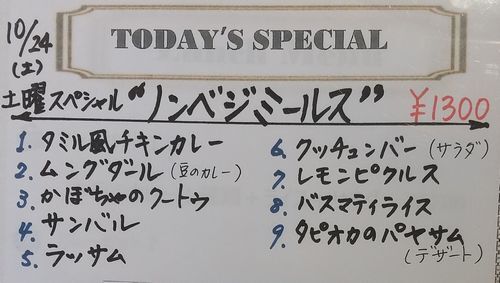 10/24
(土)
TODAY'S SPECIAL
土曜スペシャル "ノンベジミールス" ¥1300
1. タミル風チキンカレー
2. ムングダール (豆のカレー)
3. かぼちゃのクートゥ
4. サンバル
5. ラッサム
6. クッチュンバー (サラダ)
7. レモンピクルス
8. バスマティライス
9. タピオカのパヤサム
(デザート)